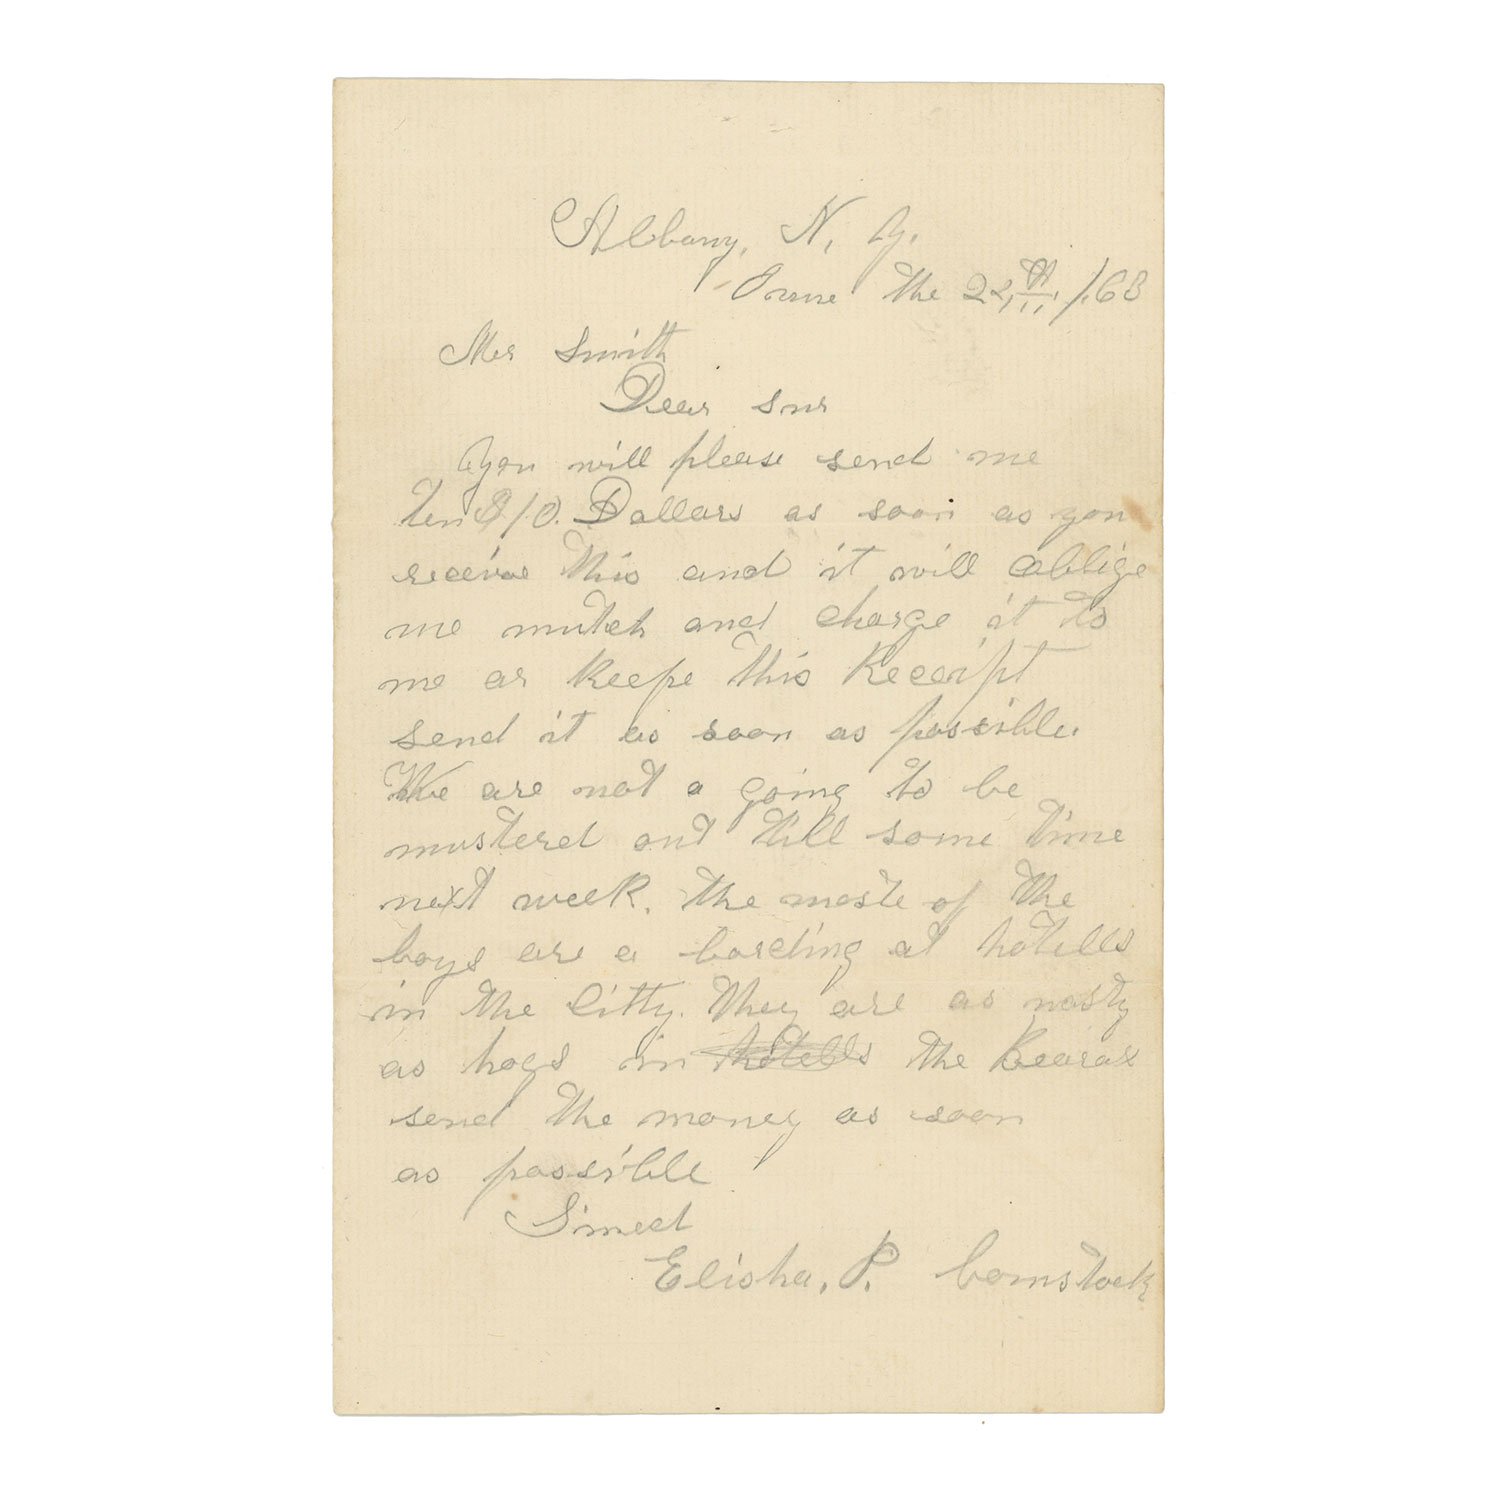 Albany, N, Y.
June the 22,th /.63
Mr Smith
Dear Sur
You will please send me
ten $10. Dollars as soon as you
receive this and it will oblige
me mutch and charge it to
me or keepe this Receipt
send it as soon as possible.
We are not a going to be
mustered out till some time
next week. the moste of the
boys are a bording at hotells
in the Citty. they are as nasty
as hogs in hotells the Bearax
send the money as soon
as possible
Sined
Elisha, P. Comstock